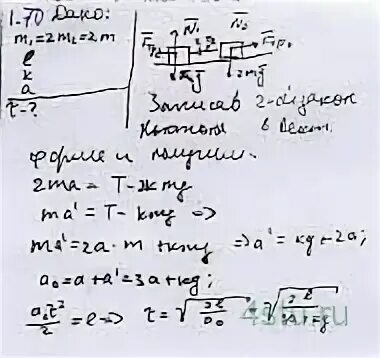 1.70 Дано:
m₁ = 2m₂ = 2m
ℓ
k
a
τ - ?
N₁ N₂
Fтр₂ Fтр₁
mg 2mg
Записав 2-ой закон
Ньютона в вект.
форме и получим.
2ma = T - kmg
ma' = T - kmg =>
ma' = 2a · m + kmg => a' = kg + 2a;
a₀ = a + a' = 3a + kg;
a₀τ²/2 = ℓ => τ = √(2ℓ/a₀) = √(2ℓ/3a+kg)